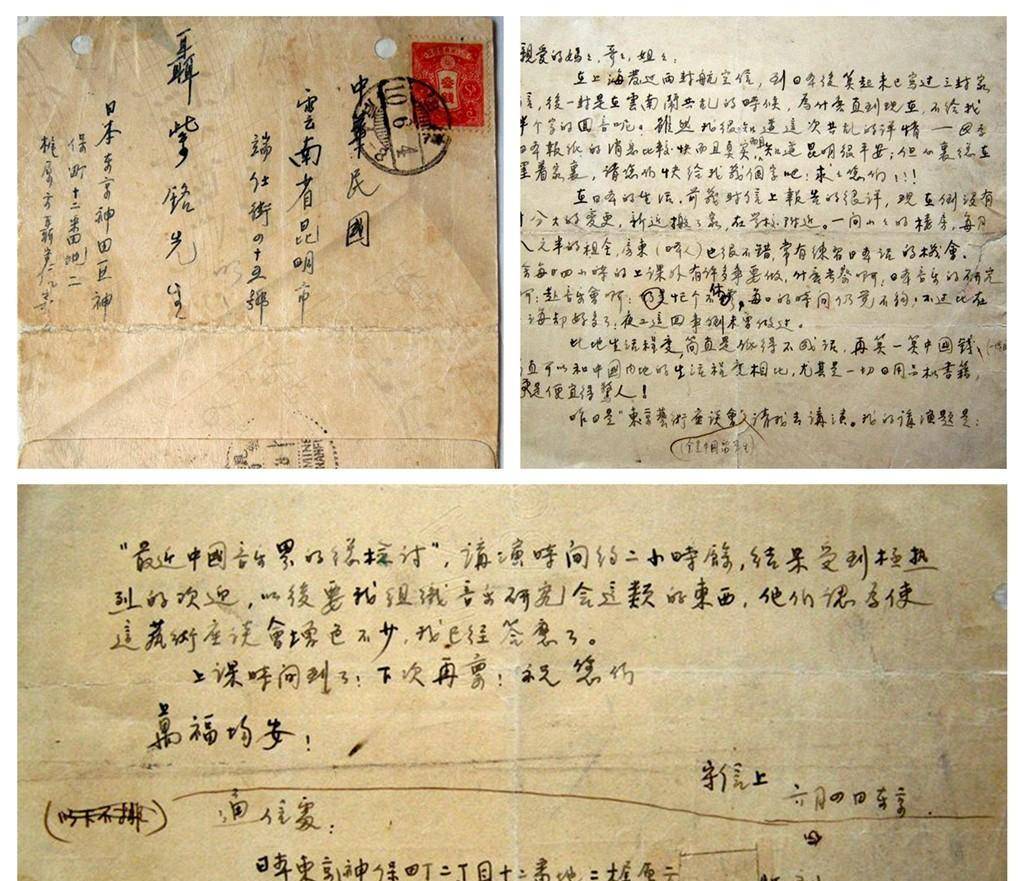 中華民國
雲南省昆明市
端仕街四十五號
聶紫銘先生
日本東京神田區神
保町十二番地二
10.6.4
親愛的媽々,哥々,姐々:
在上海發過兩封航空信,到日本後算起来已寫過三封家
信,後一封是在雲南鬧共乱的時候,為什麽直到現在,不给我
半个字的回音呢。雖然我很知道這次共乱的詳情——因為
日本報紙的消息比較快而且真實而且知道昆明很平安;但心裏總在
罣着家裏,請您们快给我幾個字吧:求々您们!!!
在日本的生活,前幾封信上報告的很詳,現在倒没有
十分大的变更,新近搬了家,在学校附近。一间小々的楼房,每月
元半的租金,房東(啼)也很不錯,常有練習日本话的機會。
每日四小時的上課外有許多事要做,什麽考察啊,日本音乐的研究
啊;赴音樂會啊;忙个不休,每日的時间仍覚不夠,不过比在
上海却好多了,夜工這四事倒未曾做过。
此地生活程度,简直是低得不成话,再算一算中國錢,
直可以和中國内地的生活程度相比,尤其是一切日用品和書籍,
更是便宜得驚人!
昨日是"東京藝術座谈會"請我去講演。我的講演題是:
(全是中国留学生)
"最近中國音乐界的總檢讨",講演時间约二小時餘,结果受到極热
烈的欢迎,以後要我组織音乐研究会這類的東西,他们認為使
這藝術座谈會增色不少,我已经答應了。
上课時间到了:下次再禀:祝您们
萬福均安!
守信上
六月四日東京.
(以下不排)
通信處:
日本東京神保町二丁目十二番地二